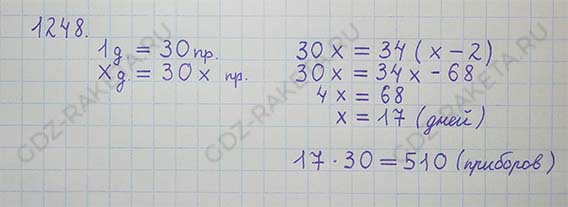 1248.
1д = 30 пр.
xд. = 30x пр.
30x = 34(x-2)
30x = 34x - 68
4x = 68
x = 17 (дней)
17 · 30 = 510 (приборов)
GDZ-RAKETA.RU
GDZ-RAKETA.RU
GDZ-RAKETA.RU